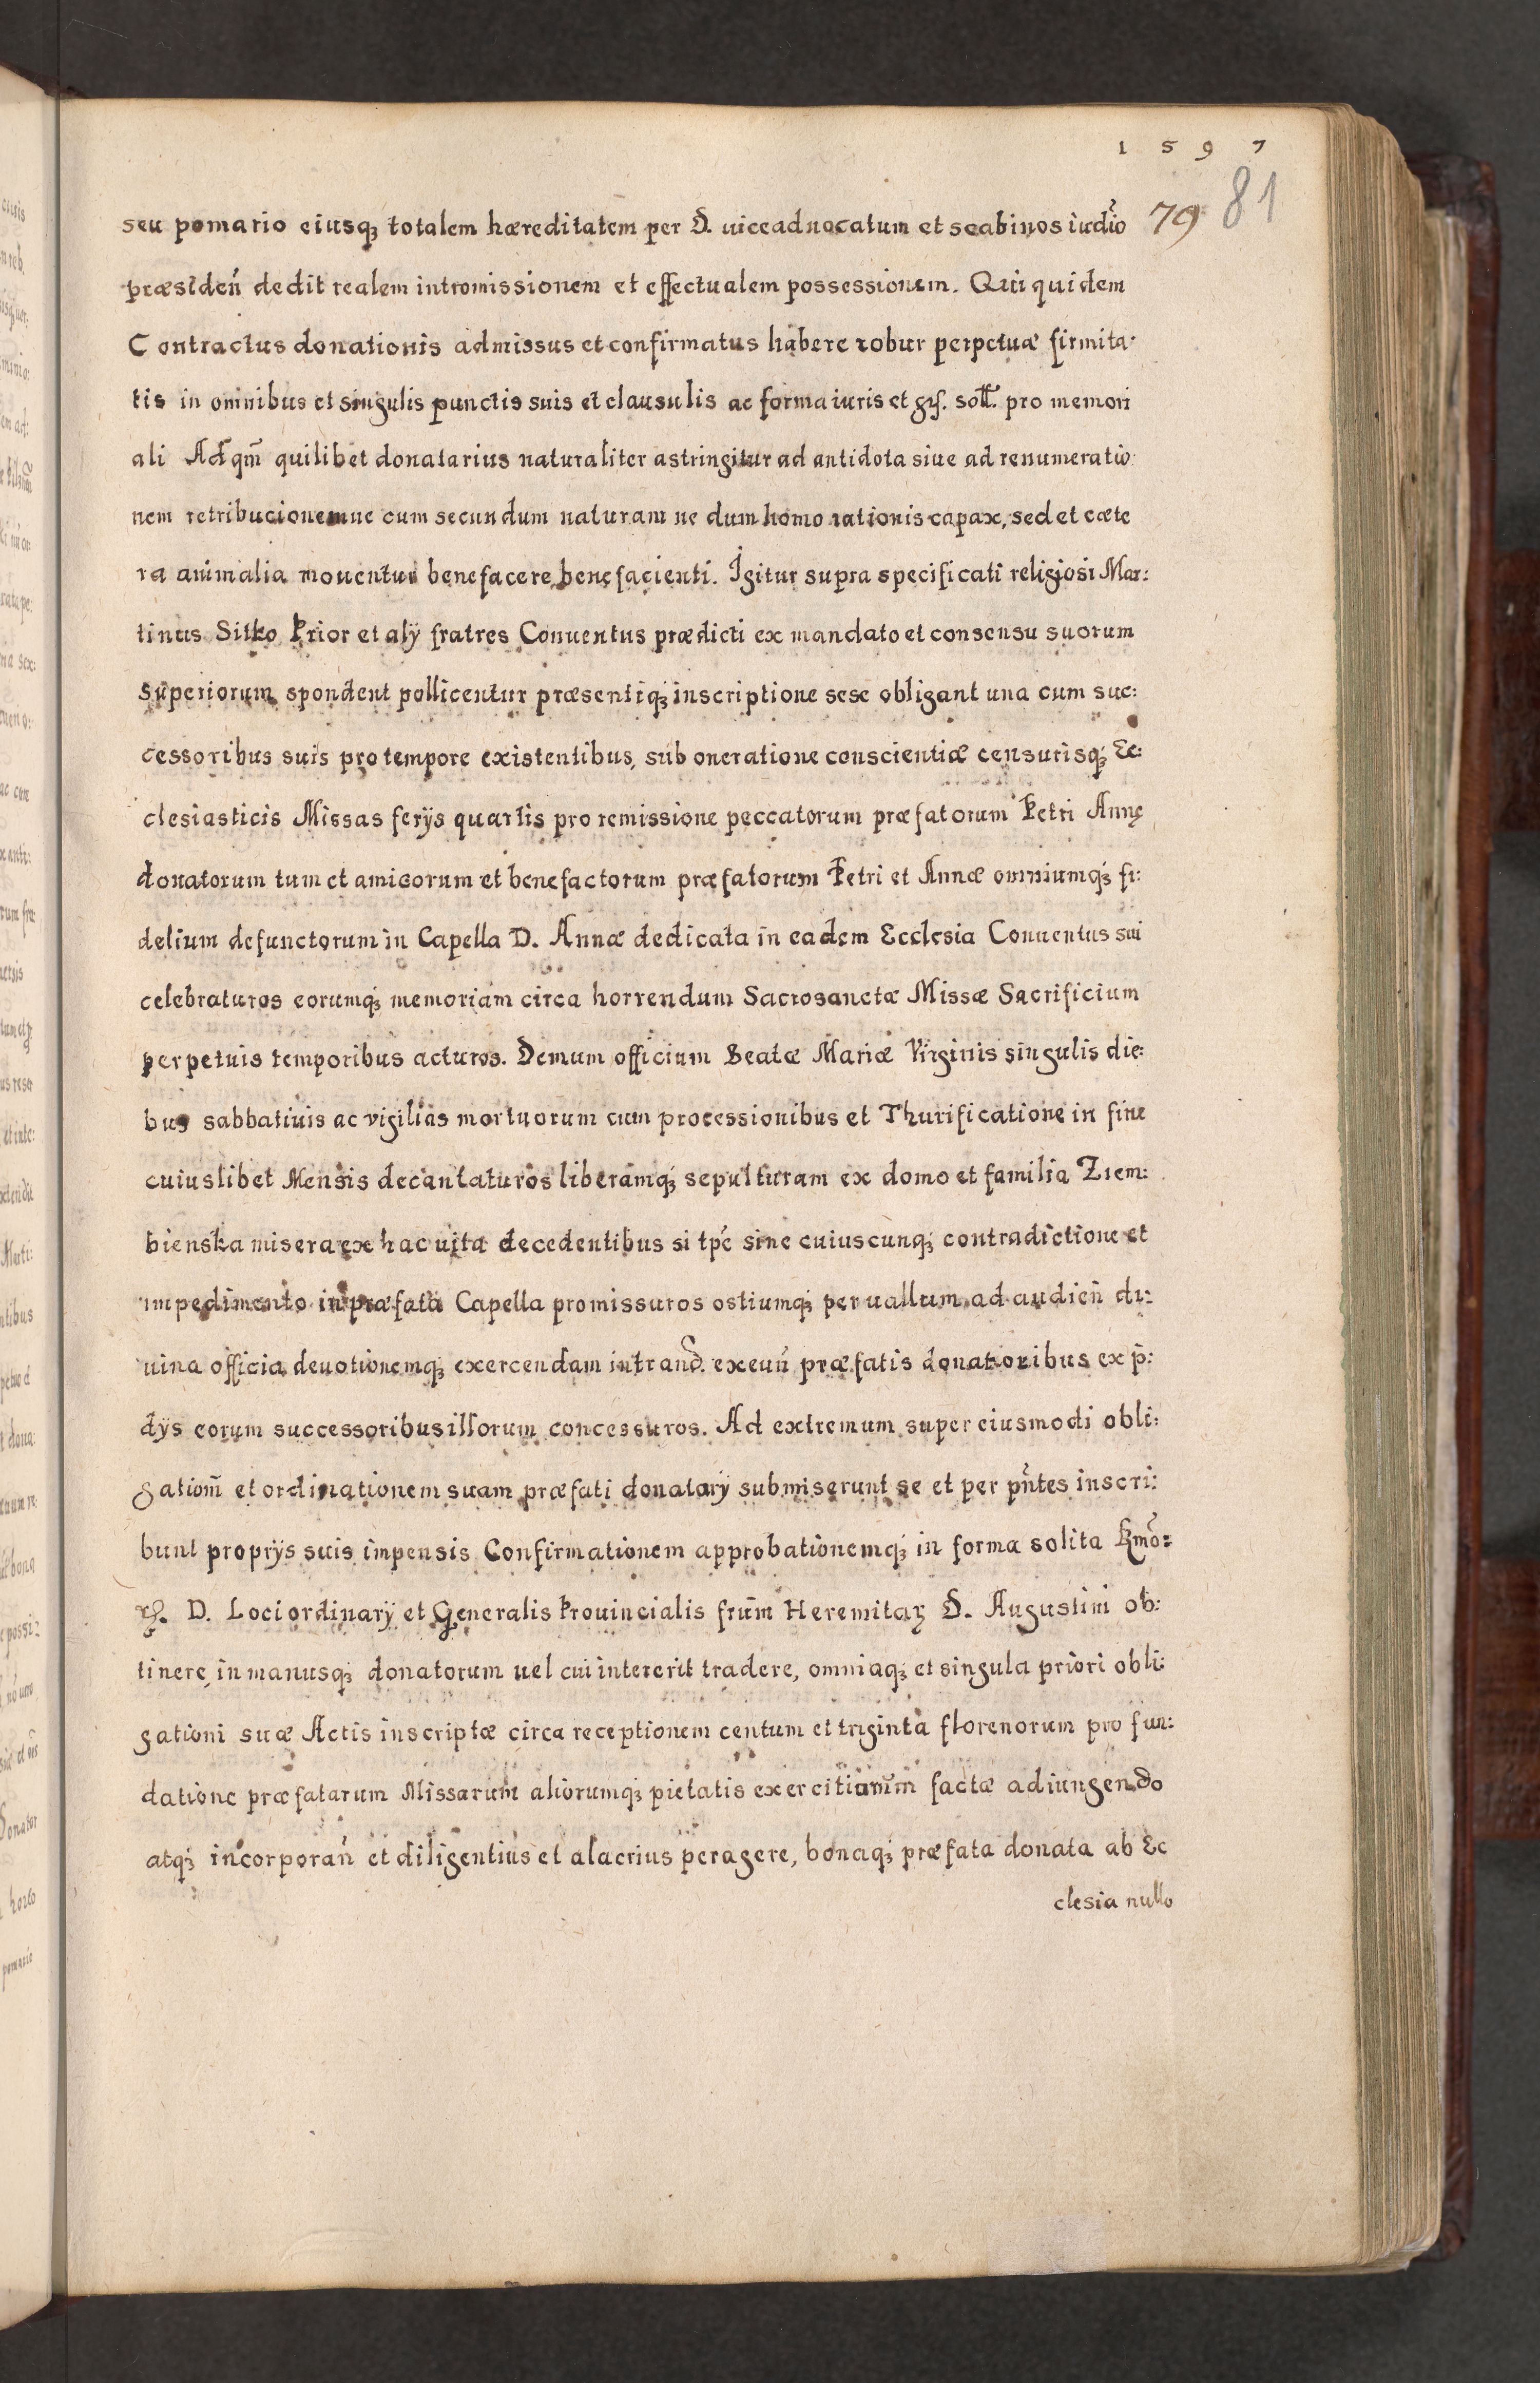 1 5 9 7
79 81
seu pomario eiusq; totalem hæreditatem per D. uiceaduocatum et scabinos iudio
præsiden̄ dedit realem intromissionem et effectualem possessionem. Qui quidem
Contractus donationis admissus et confirmatus habere robur perpetuæ firmita:
tis in omnibus et singulis punctis suis et clausulis ac forma iuris et pro memori
ali Ad qm̄ quilibet donatarius naturaliter astringitur ad antidota siue ad renumeratio:
nem retribucionemue cum secundum naturam ne dum homo rationis capax, sed et cæte
ra animalia mouentur benefacere benefacienti. Igitur supra specificati religiosi Mar:
tinus Sitko Prior et alÿ fratres Conuentus prædicti ex mandato et consensu suorum
superiorum spondent pollicentur præsentiq; inscriptione sese obligant una cum suc:
cessoribus suis pro tempore existentibus, sub oneratione conscientiæ censurisq; Ec:
clesiasticis Missas ferÿs quartis pro remissione peccatorum præfatorum Petri Annę
donatorum tum et amicorum et benefactorum præfatorum Petri et Annæ omniumq; fi:
delium defunctorum in Capella D. Annæ dedicata in eadem Ecclesia Conuentus sui
celebraturos eorumq; memoriam circa horrendum Sacrosanctæ Missæ Sacrificium
perpetuis temporibus acturos. Demum officium Beatæ Mariæ Virginis singulis die:
bus sabbatiuis ac vigilias mortuorum cum processionibus et Thurificatione in fine
cuiuslibet Mensis decantaturos liberamq; sepulturam ex domo et familia Ziem:
bienska misera ex hac uita decedentibus si tp̄e sine cuiuscunq; contradictione et
impedimento in præfata Capella promissuros ostiumq; per uallum ad audien̄ di:
uina officia deuotionemq; exercendam intrand. exeun̄ præfatis donatoribus ex p̄:
dÿs eorum successoribus illorum concessuros. Ad extremum super eiusmodi obli:
gatiom̄ et ordinationem suam præfati donatarÿ submiserunt se et per pn̄tes inscri:
bunt proprÿs suis impensis Confirmationem approbationemq; in forma solita Rmo:
rꝝ. D. Loci ordinarÿ et Generalis Prouincialis frum̄ Heremitaꝝ D. Augustini ob:
tinere in manusq; donatorum uel cui intererit tradere, omniaq; et singula priori obli:
gationi suæ Actis inscriptæ circa receptionem centum et triginta florenorum pro fun:
datione præfatarum Missarum aliorumq; pietatis exercitiorum̄ factæ adiungendo
atq; incorporan̄ et diligentius et alacrius peragere, bonaq; præfata donata ab Ec
clesia nullo